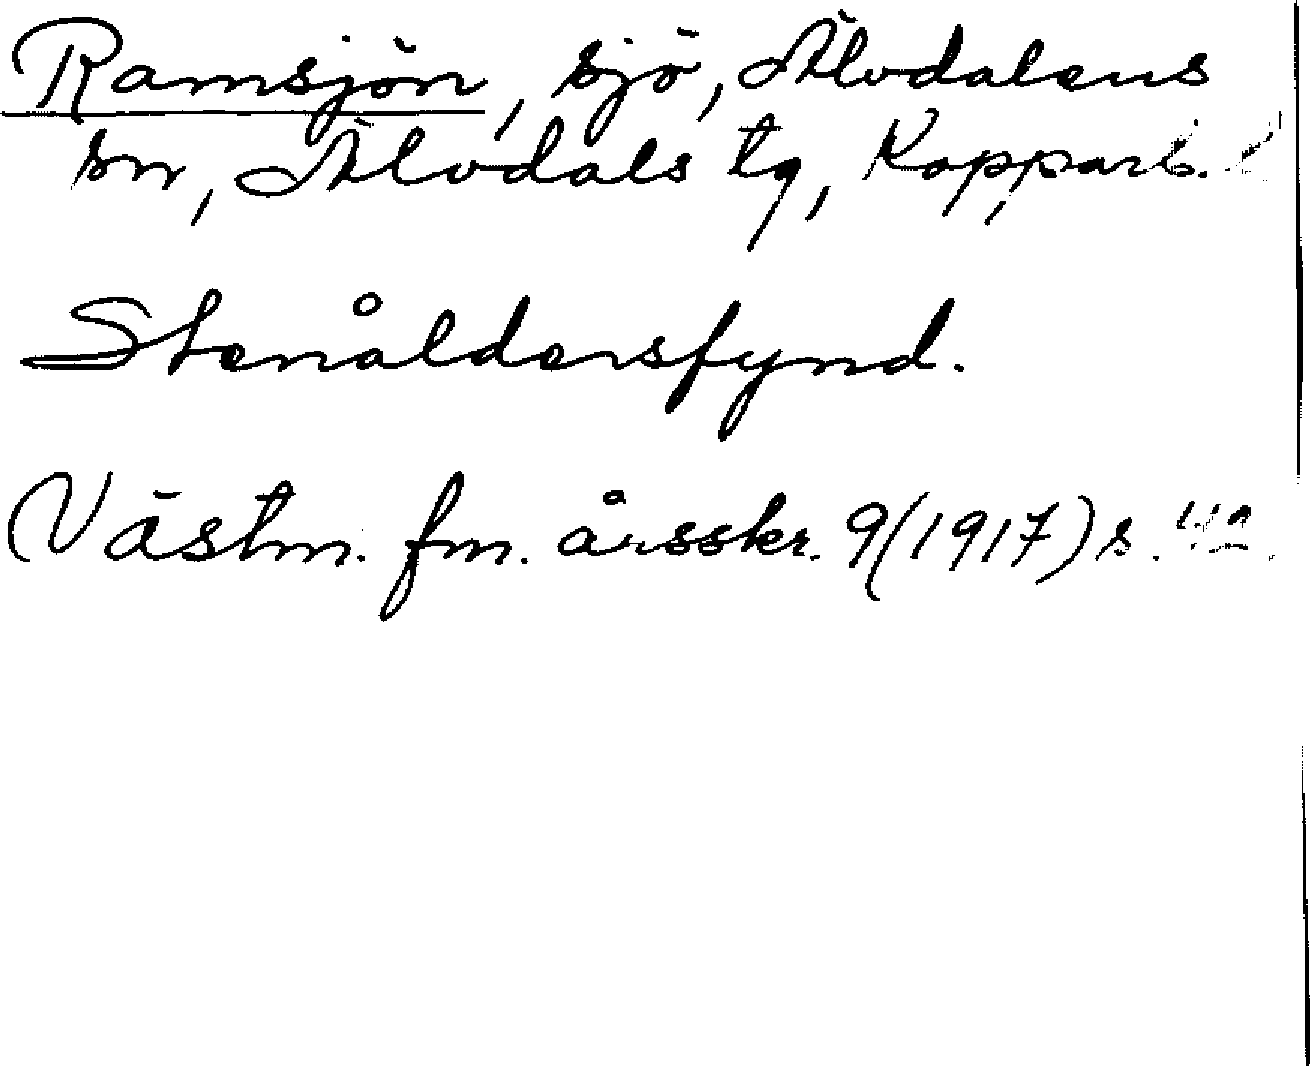 Ramsjön, sjö, Älvdalens
sn, Älvdals tg, Kopparb. l
Stenåldersfynd.
Västm. fm. årsskr. 9 (1917) s. 42.